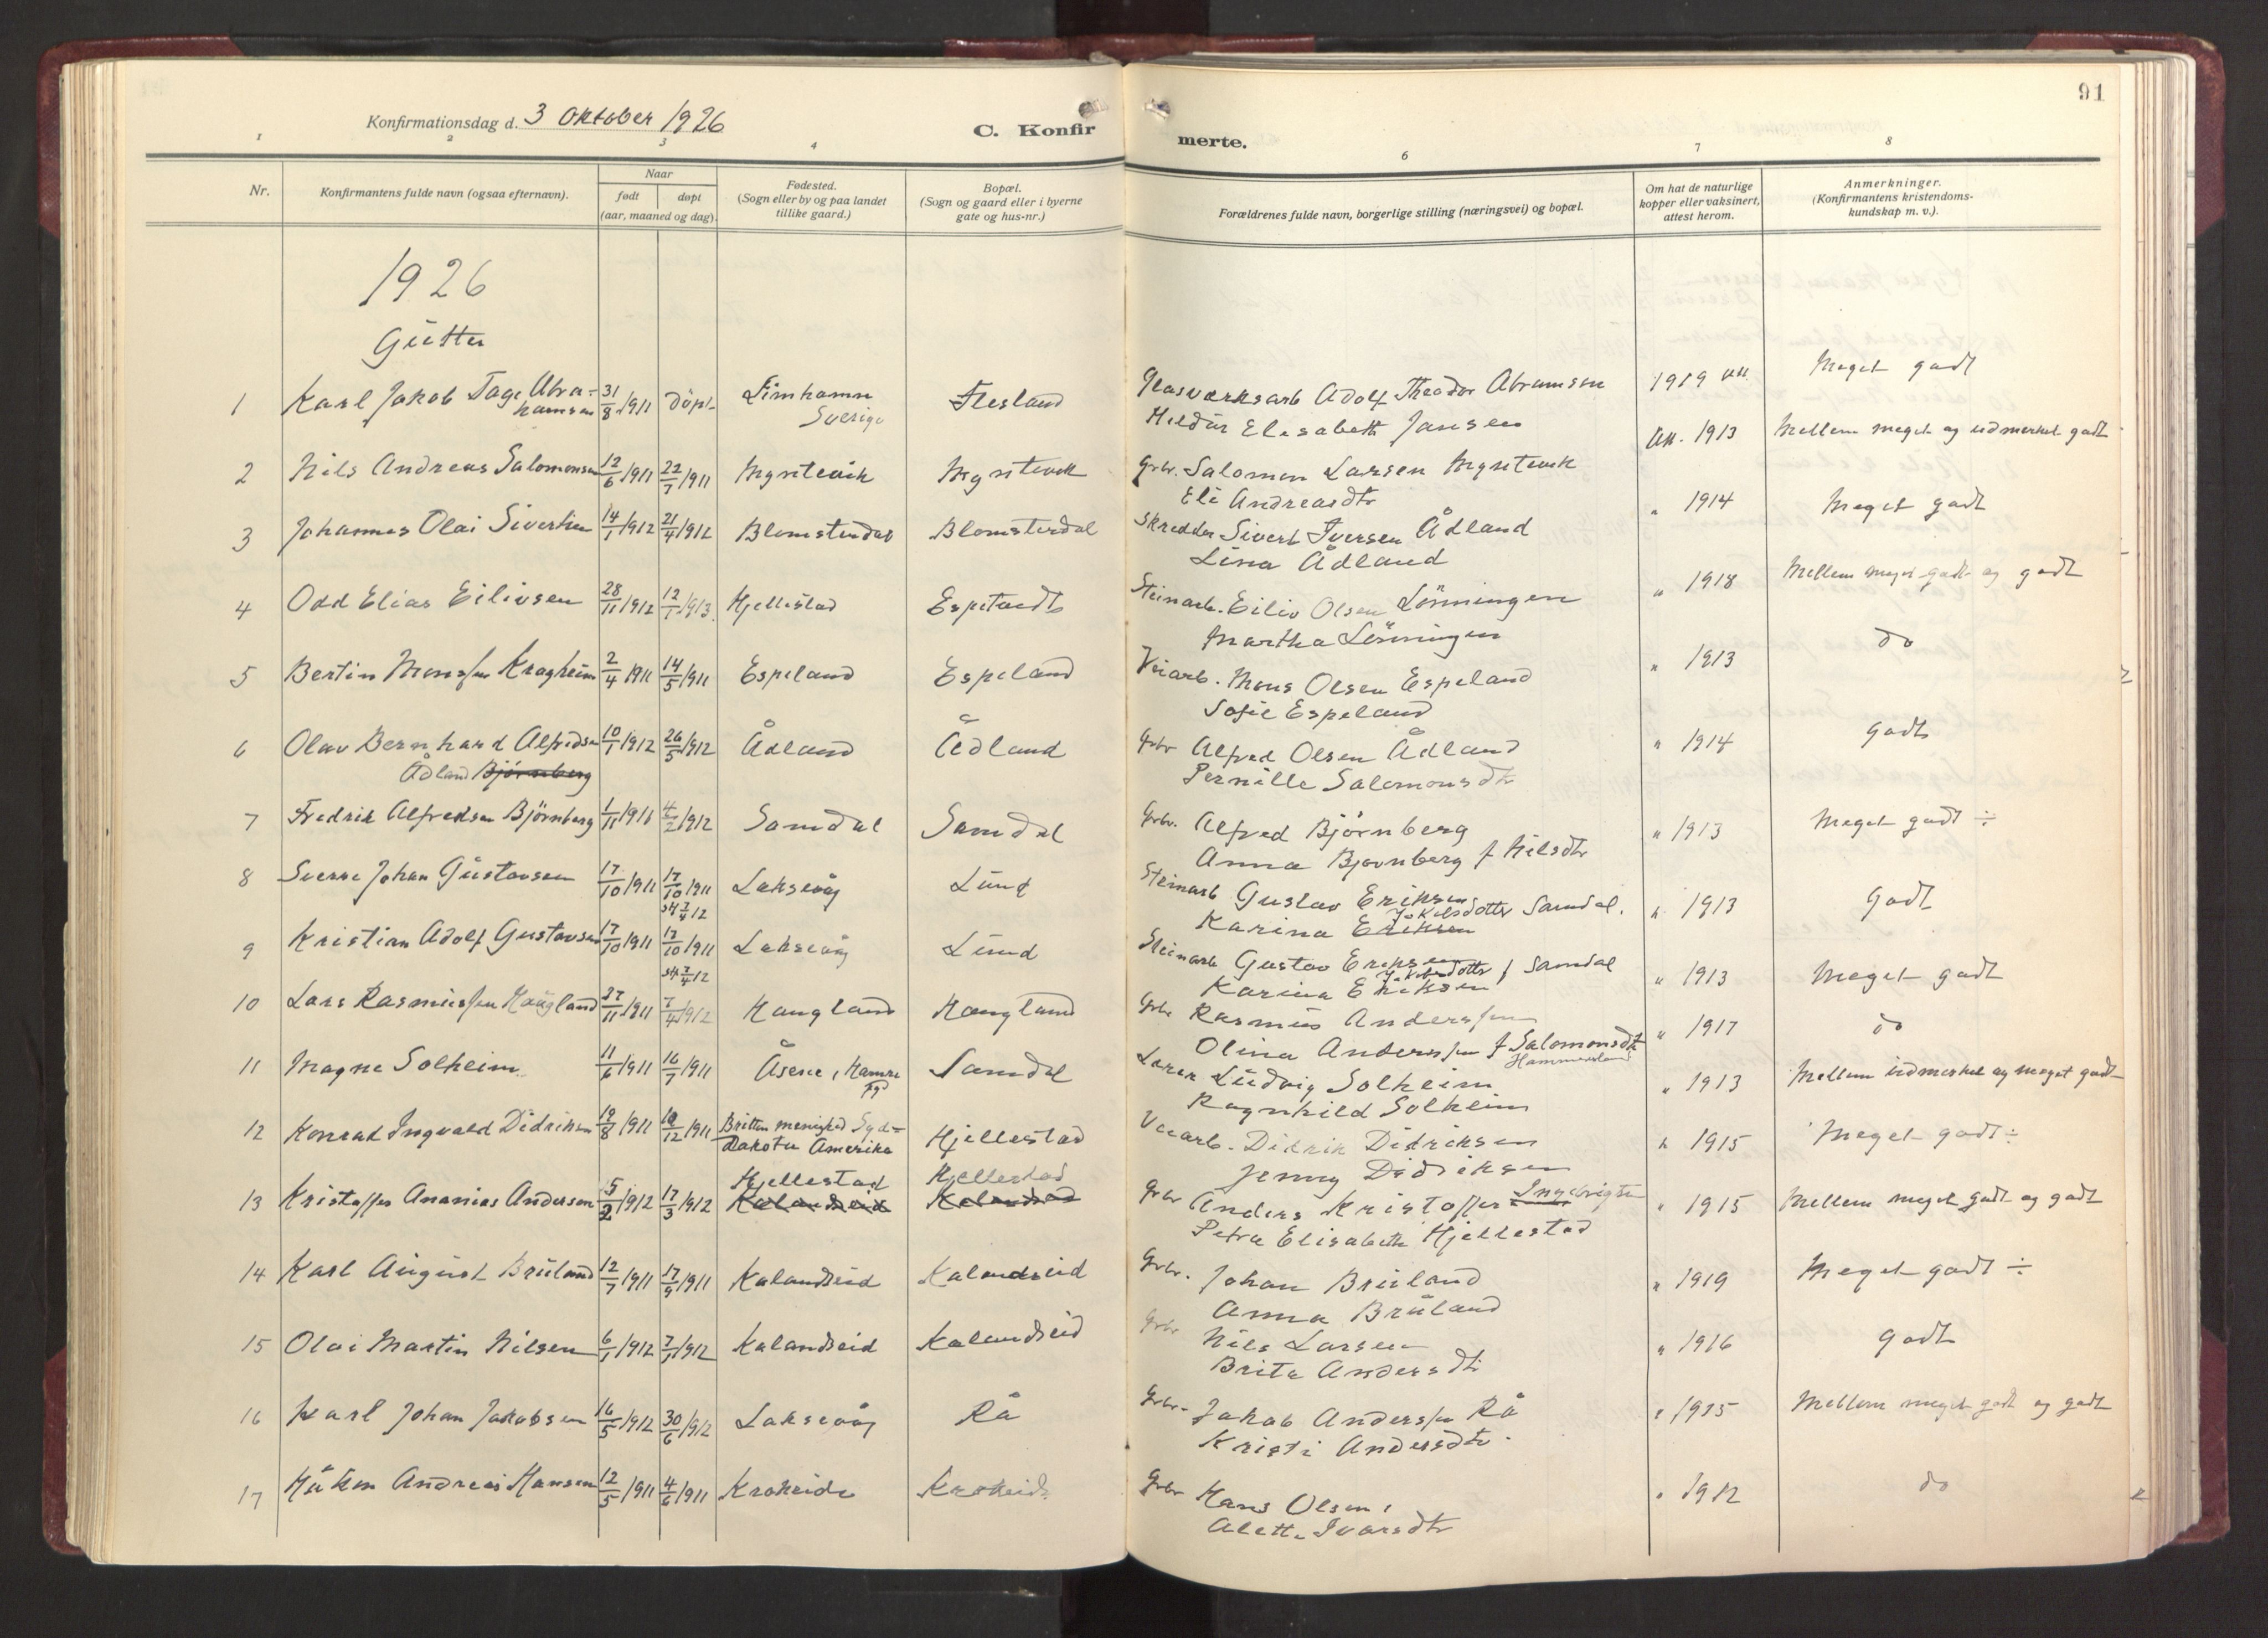 91
Konfirmationsdag d. 3 Oktober 1926
C. Konfir
merte.
1 2 3 4 6 7 8
Nr.
Konfirmantens fulde navn (ogsaa efternavn).
Naar
født døpt
(aar, maaned og dag).
Fødested.
(Sogn eller by og paa landet
tillike gaard.)
Bopæl.
(Sogn og gaard eller i byerne
gate og hus-nr.)
Forældrenes fulde navn, borgerlige stilling (næringsvei) og bopæl.
Om hat de naturlige
kopper eller vaksinert,
attest herom.
Anmerkninger.
(Konfirmantens kristendoms-
kundskap m. v.).
1926
Gutter
1 Karl Jakob Tage Abra- 31/8 1911 döpt Limhamn Flesland Glasværksarb Adolf Theodor Abramsen 1919 Att. Meget godt
hamsen Sverige Hildur Elisabeth Jansen
2 Nils Andreas Salomonsen 12/6 1911 22/7 1911 Mynstevik Mynstevik Grbr. Salomon Larsen Mynstevik Att. 1913 Mellem meget og udmerket godt
Eli Andreasdtr
3 Johannes Olai Sivertsen 14/1 1912 21/4 1912 Blomsterdal Blomsterdal Skredder Sivert Iversen Ådland " 1914 Meget godt
Lina Ådland
4 Odd Elias Eilivsen 28/11 1912 12/1 1913 Hjellestad Espetvedt Steinarb. Eiliv Olsen Lönningen " 1918 Mellem meget godt og godt
Martha Lönningen
5 Bertin Monssen Kragheim 2/4 1911 14/5 1911 Espeland Espeland Veiarb. Mons Olsen Espeland " 1913 do
Sofie Espeland
6 Olav Bernhard Alfredsen 10/1 1912 26/5 1912 Ådland Ådland Grbr Alfred Olsen Ådland " 1914 Godt
Ådland Bjørnberg Pernille Salomonsdtr
7 Fredrik Alfredsen Björnberg 1/11 1911 4/2 1912 Samdal Samdal Grbr. Alfred Björnberg " 1913 Meget godt ÷
Anna Bjørnberg f Nilsdtr
8 Sverre Johan Gustavsen 17/10 1911 17/10 1911 Laksevåg Lund Steinarb Gustav Eriksen " 1913 Godt
st 7/4 12 Karina Eriksen Jakobsdotter Samdal.
9 Kristian Adolf Gustavsen 17/10 1911 17/10 1911 Laksevåg Lund Steinarb Gustav Eriksen " 1913 Meget godt
st 7/4 12 Karina Eriksen Jakobsdotter f Samdal
10 Lars Rasmussen Haugland 27/11 1911 7/4 1912 Haugland Haugland Grbr Rasmus Anderssen " 1917 do
Olina Anderssen f Salomonsdtr
Hammersland
11 Magne Solheim 11/6 1911 16/7 1911 Åsene, Hamre Samdal Lærer Ludvig Solheim " 1913 Mellem udmerket og meget godt
Ragnhild Solheim
12 Konrad Ingvald Didriksen 19/8 1911 10/12 1911 Britton menighed Syd- Hjellestad Veiarb. Didrik Didriksen " 1915 Meget godt ÷
Dakota Amerika Jenny Didriksen
13 Kristoffer Ananias Andersen 5/2 1912 17/3 1912 Hjellestad Hjellestad Grbr Anders Kristoffer Ingebrigtsen " 1915 Mellem meget godt og godt
Kalandseid Kalandseid Petra Elisabeth Hjellestad
14 Karl August Bruland 12/7 1911 17/9 1911 Kalandseid Kalandseid Grbr. Johan Bruland " 1919 Meget godt ÷
Anna Bruland
15 Olai Martin Nilsen 6/1 1912 7/1 1912 Kalandseid Kalandseid Grbr Nils Larsen " 1916 Godt
Brita Andersdtr
16 Karl Johan Jakobsen 16/5 1912 30/6 1912 Laksevåg Rå Grbr. Jakob Anderssen Rå " 1915 Mellem meget godt og godt
Kristi Andersdtr.
17 Håkon Andreas Hansen 12/5 1911 4/6 1911 Krokeide Krokeide Grbr Hans Olsen, " 1912 do
Alette Ivarsdtr